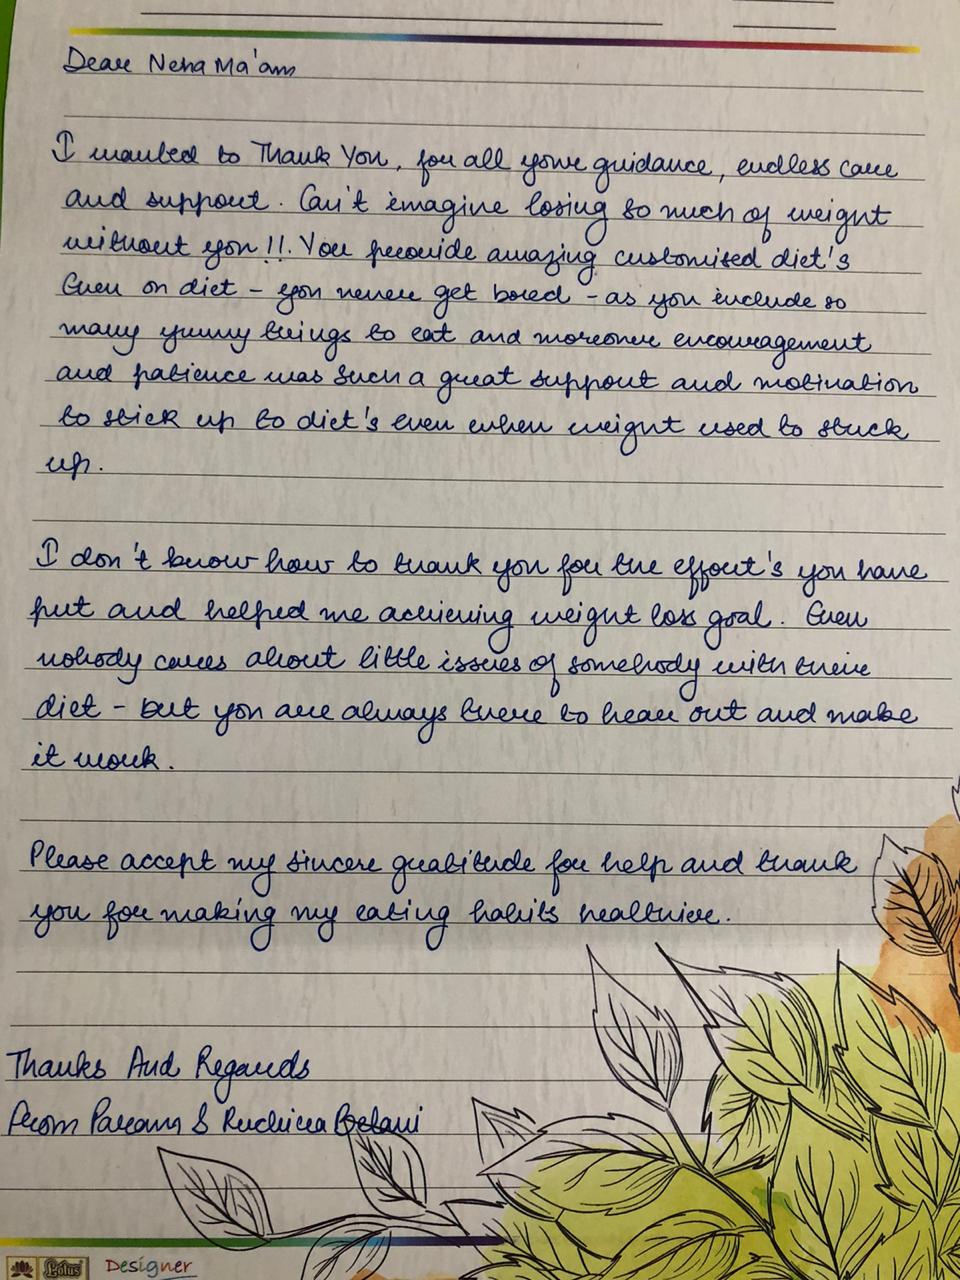 Dear Neha Ma'am
I wanted to Thank You, for all your guidance, endless care
and support. Can't imagine losing so much of weight
without you !!. You provide amazing customised diet's
Even on diet - you never get bored - as you include so
many yummy things to eat and moreover encouragement
and patience was such a great support and motivation
to stick up to diet's even when weight used to stuck
up.
I don't know how to thank you for the effort's you have
put and helped me achieving weight loss goal. Even
nobody cares about little issues of somebody with their
diet - but you are always there to hear out and make
it work.
Please accept my sincere gratitude for help and thank
you for making my eating habits healthier.
Thanks And Regards
From Param & Ruchira
Lotus Designer